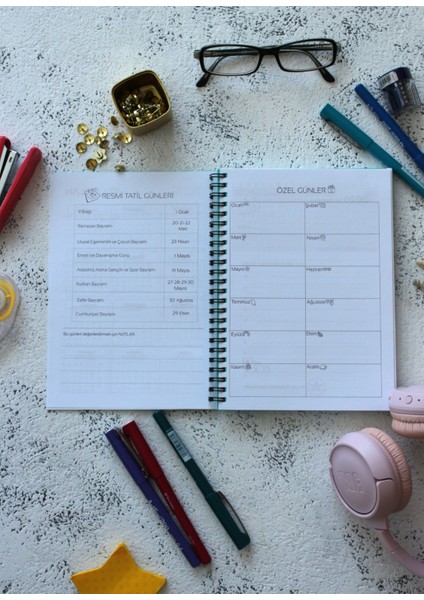 RESMİ TATİL GÜNLERİ
Yılbaşı 1 Ocak
Ramazan Bayramı 20-21-22 Mart
Ulusal Egemenlik ve Çocuk Bayramı 23 Nisan
Emek ve Dayanışma Günü 1 Mayıs
Atatürk'ü Anma Gençlik ve Spor Bayramı 19 Mayıs
Kurban Bayramı 27-28-29-30 Mayıs
Zafer Bayramı 30 Ağustos
Cumhuriyet Bayramı 29 Ekim
Bu günleri değerlendirmek için NOTLAR:
ÖZEL GÜNLER
Ocak Şubat
Mart Nisan
Mayıs Haziran
Temmuz Ağustos
Eylül Ekim
Kasım Aralık